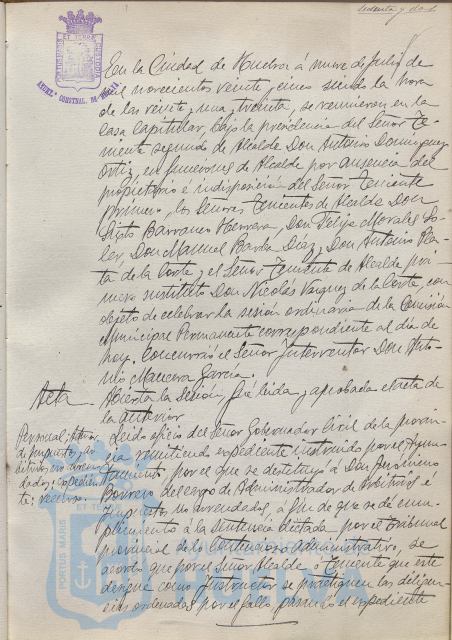 sesenta y dos
AYUNT.º CONSTNAL. DE HUELVA
En la Ciudad de Huelva á nueve de Julio de
mil novecientos veinte y cinco siendo la hora
de las veinte y una y treinta, se reunieron en la
Casa Capitular, bajo la presidencia del Señor Te-
niente segundo de Alcalde Don Antonio Dominguez
Ortiz, en funciones de Alcalde por ausencia del
propietario e indisposición del Señor Teniente
primero, los Señores Tenientes de Alcalde Don
Sixto Barranco Herrera, Don Felipe Morales So-
ler, Don Manuel Barba Díaz, Don Antonio Pla-
ta de la Corte y el Señor Teniente de Alcalde pri-
mero sustituto Don Nicolás Vazquez de la Corte, con
objeto de celebrar la sesión ordinaria de la Comisión
Municipal Permanente correspondiente al día de
hoy. Concurrió el Señor Interventor Don Anto-
nio Mancera Garcia.
Acta
Abierta la Sesión, fué leida y aprobada el acta de
la anterior.
Personal; Admor.
de impuestos y ar-
bitrios no arren-
dados; expedien-
te; recurso.
Leido oficio del Señor Gobernador Civil de la provin-
cia remitiendo expediente instruido por el Ayun-
tamiento por el que se destituyó a Don Jerónimo
Borrero del cargo de Administrador de Arbitrios é
Impuestos no arrendados, á fin de que se dé cum-
plimiento á la Sentencia dictada por el tribunal
provincial de lo Contencioso administrativo, se
acordó que por el Señor Alcalde ó Teniente que este
designe como Instructor se practiquen las diligen-
cias ordenadas por el fallo, pasando el expediente
PORTUS MARIS
ET TERRE